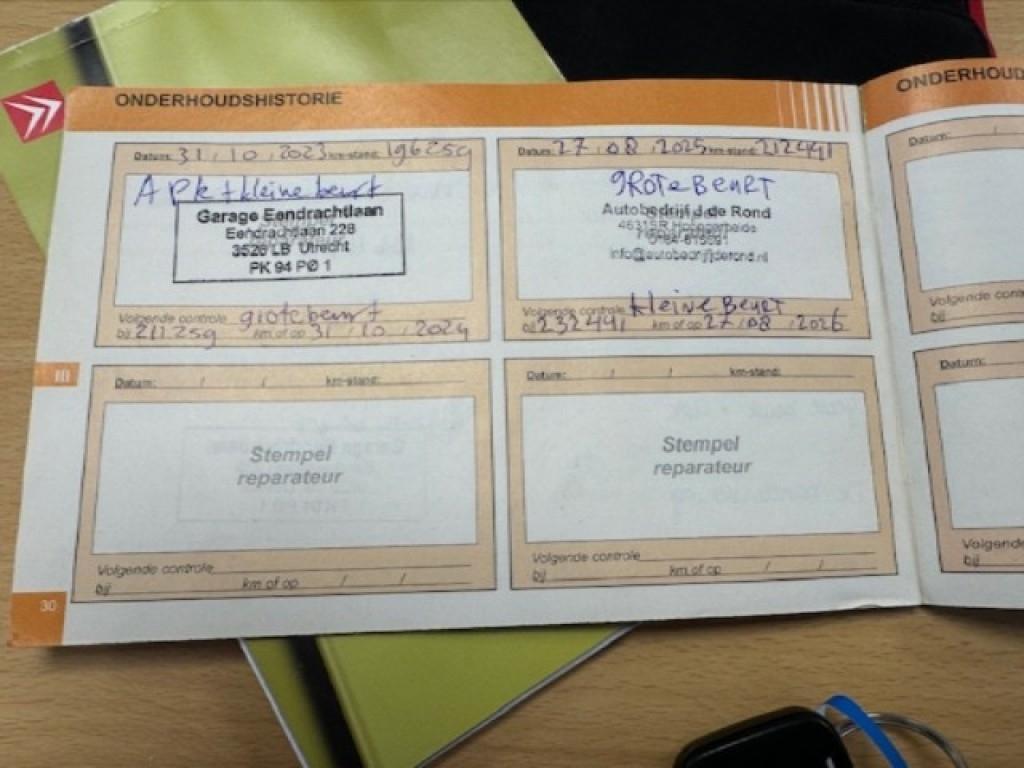 ONDERHOUDSHISTORIE
Datum: 31 / 10 / 2023 km-stand: 196259
APK + kleine beurt
Garage Eendrachtlaan
Eendrachtlaan 228
3526 LB Utrecht
PK 94 PØ 1
Volgende controle grote beurt
bij 211259 km of op 31 / 10 / 2024
Datum: 27 / 08 / 2025 km-stand: 212441
GROTE BEURT
Autobedrijf J de Rond
4631SR Hoogerheide
info@autobedrijfjderond.nl
Volgende controle kleine Beurt
bij 232441 km of op 27 / 08 / 2026
Datum: / / km-stand:
Stempel
reparateur
Volgende controle
bij km of op / /
Datum: / / km-stand:
Stempel
reparateur
Volgende controle
bij km of op / /
30
III
ONDERHOUD
Datum: /
Volgende
bij
Datum:
Volgende
bij